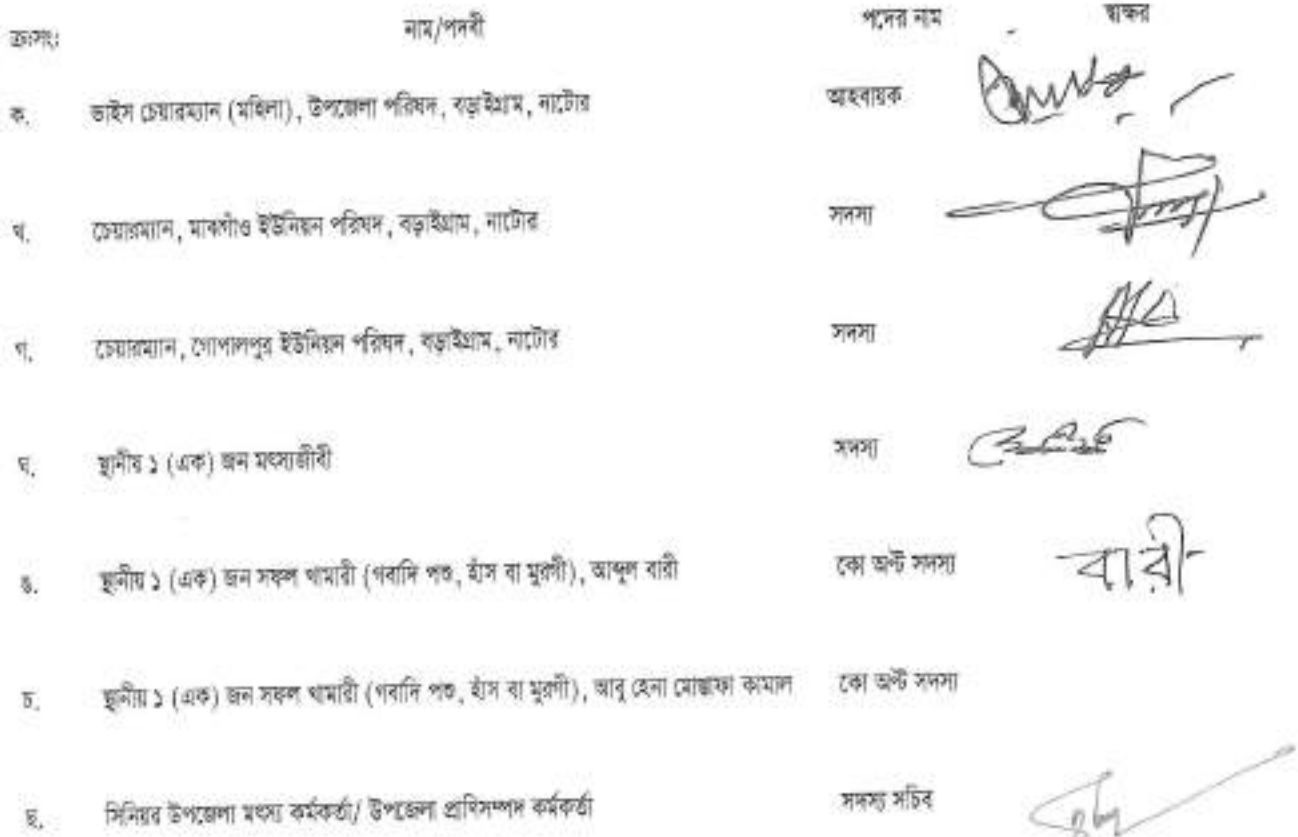 ক্রঃসং: নাম/পদবী পদের নাম স্বাক্ষর
ক. ভাইস চেয়ারম্যান (মহিলা), উপজেলা পরিষদ, বড়াইগ্রাম, নাটোর আহবায়ক
খ. চেয়ারম্যান, মাঝগাঁও ইউনিয়ন পরিষদ, বড়াইগ্রাম, নাটোর সদস্য
গ. চেয়ারম্যান, গোপালপুর ইউনিয়ন পরিষদ, বড়াইগ্রাম, নাটোর সদস্য
ঘ. স্থানীয় ১ (এক) জন মৎস্যজীবী সদস্য
ঙ. স্থানীয় ১ (এক) জন সফল খামারী (গবাদি পশু, হাঁস বা মুরগী), আব্দুল বারী কো অপ্ট সদস্য বারী
চ. স্থানীয় ১ (এক) জন সফল খামারী (গবাদি পশু, হাঁস বা মুরগী), আবু হেনা মোস্তাফা কামাল কো অপ্ট সদস্য
ছ. সিনিয়র উপজেলা মৎস্য কর্মকর্তা/ উপজেলা প্রাণিসম্পদ কর্মকর্তা সদস্য সচিব